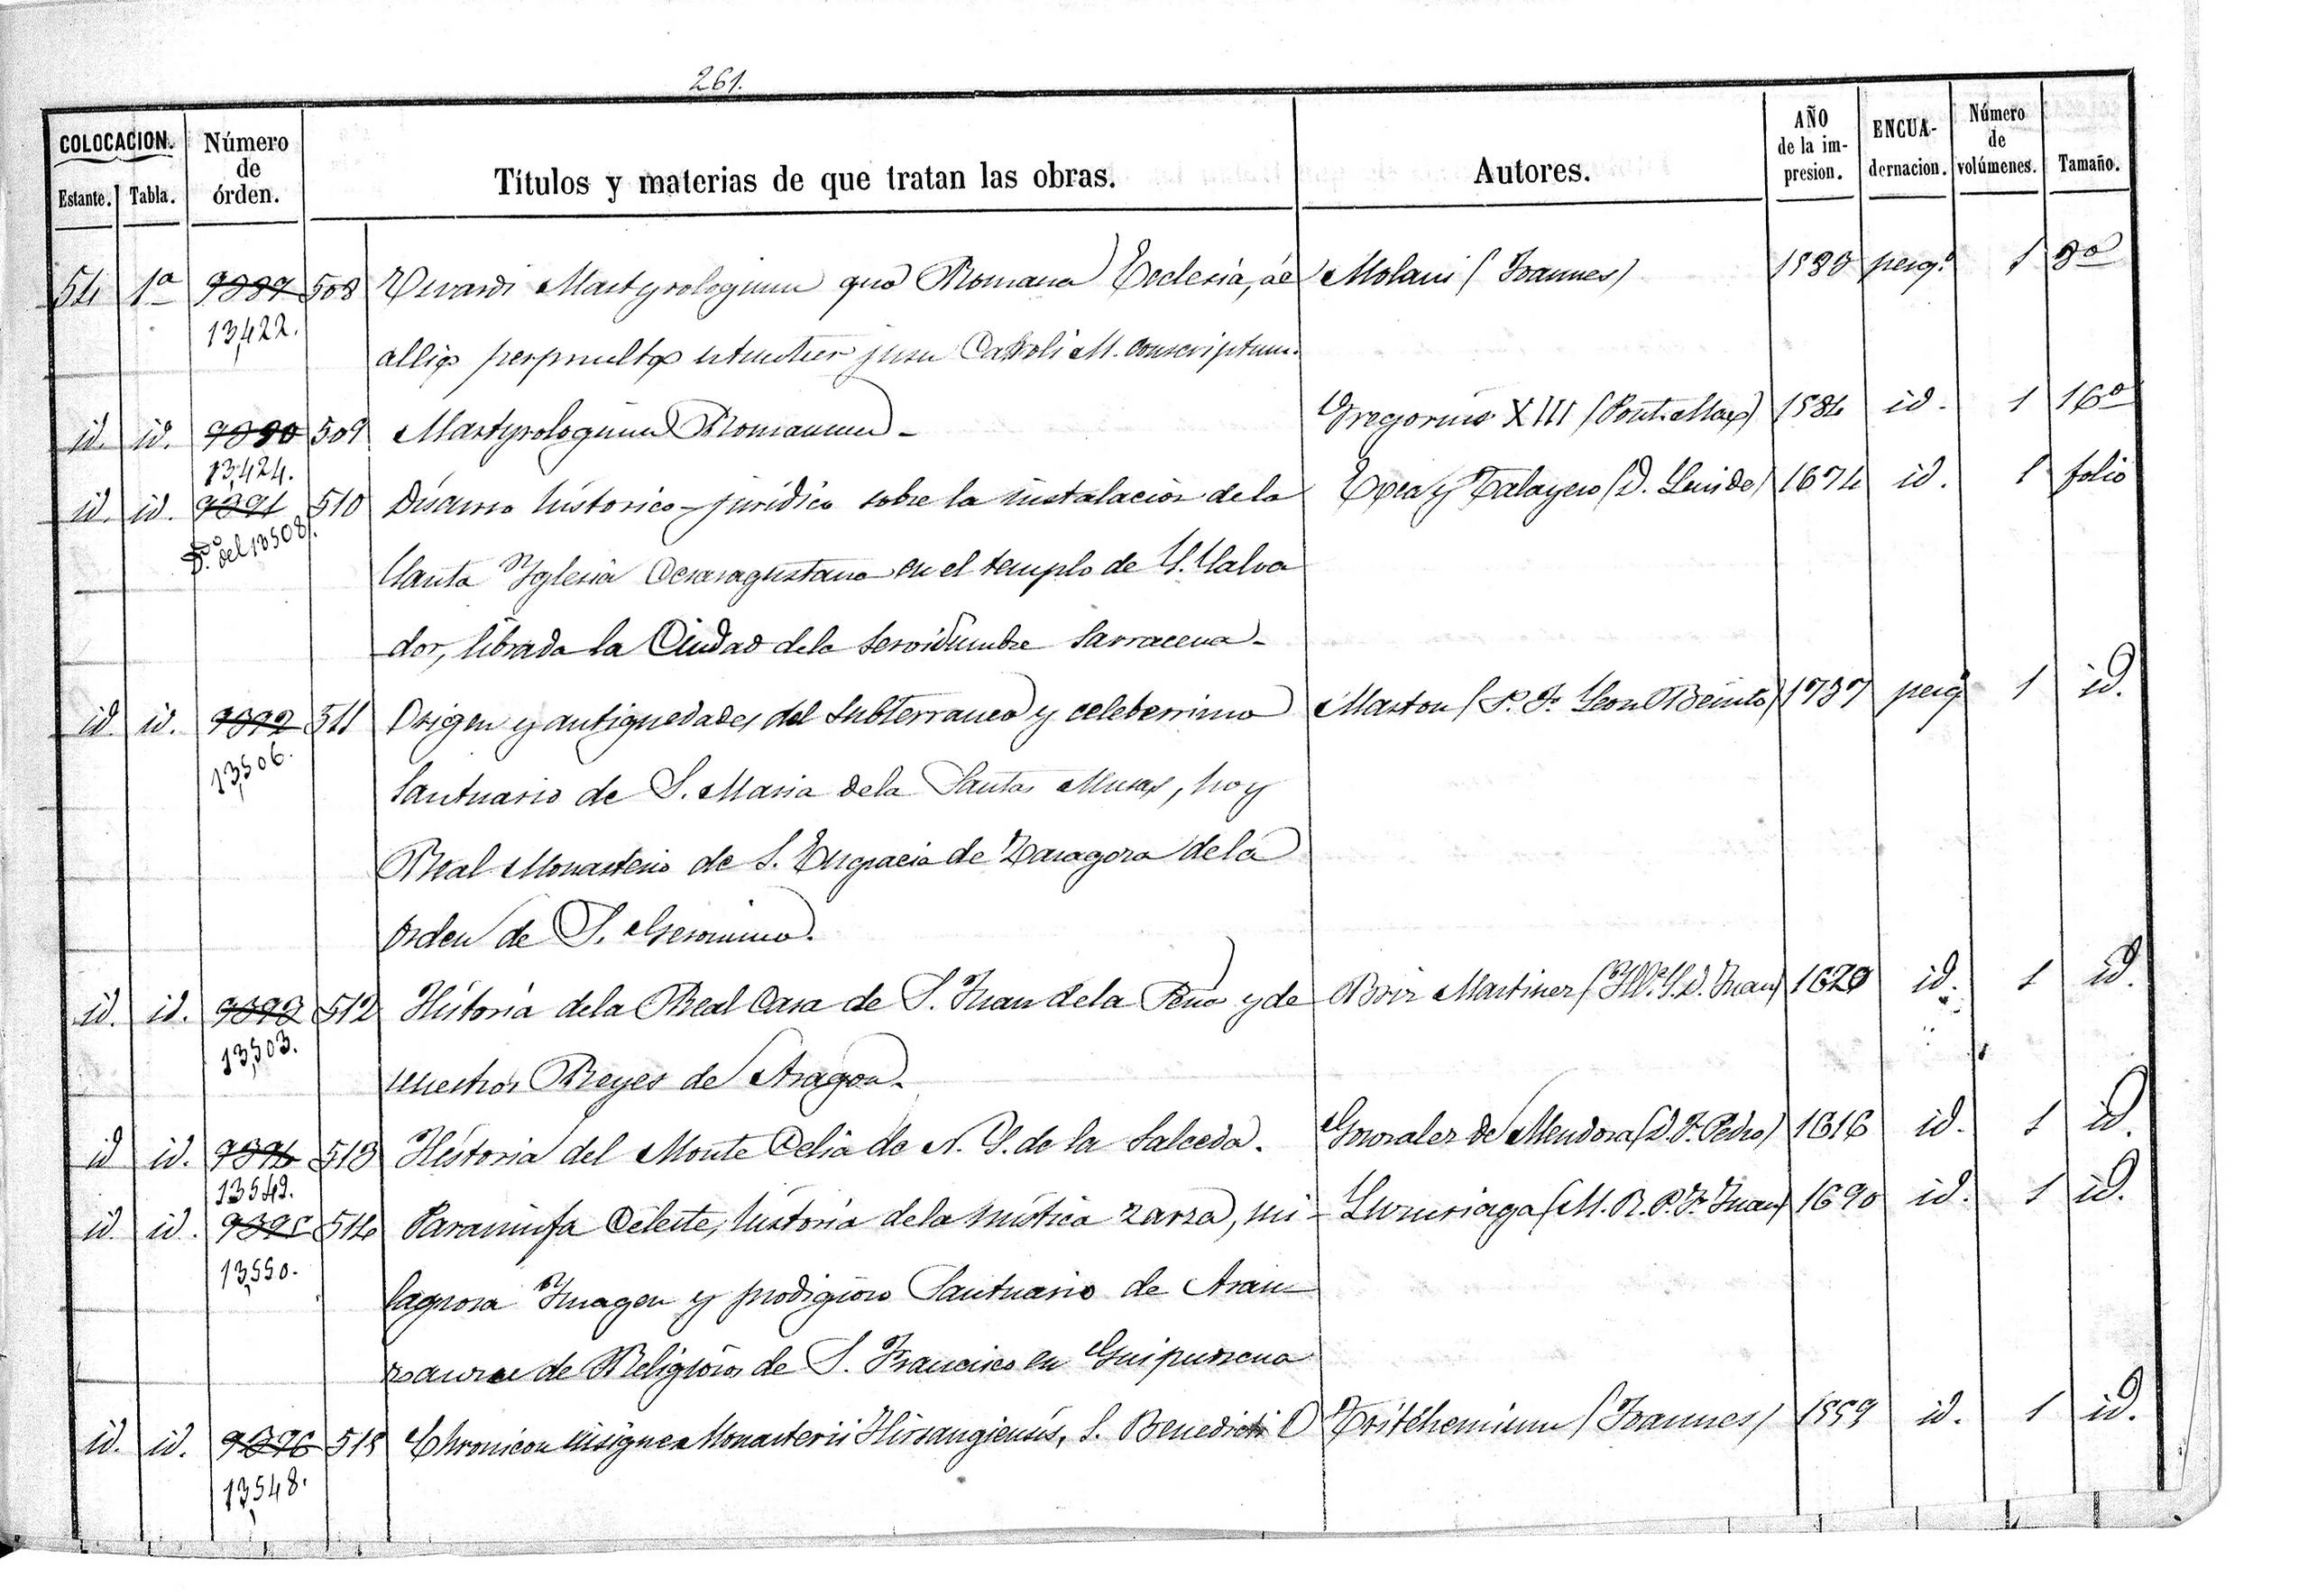 261.
COLOCACION. Número de órden. Títulos y materias de que tratan las obras. Autores. AÑO de la impresion. ENCUAdernacion. Número de volúmenes. Tamaño.
Estante. Tabla.
54 1a 9389 508 Usuardi Martyrologium quo Romana Ecclesia, ac Molani (Joannes) 1583 perg.o 1 8o
13,422.
aliiq perpmultq utuntur jusu Caroli M. conscriptum.
id. id. 9390 509 Martyrologium Romanum - Gregorius XIII (Pont. Max) 1584 id. 1 16o
13,424.
id. id. 9391 510 Discurso historico-juridico sobre la instalacion de la Exea y Talayero (D. Luis de) 1674 id. 1 folio
Do del 13508.
Santa Yglesia Cesaragustana en el templo de S. Salva
dor, librada la Ciudad dela servidumbre Sarracena-
id. id. 9392 511 Origen y antiguedades del subterraneo y celeberrimo Marton (P. F. Leon Benito) 1737 perg 1 id.
13,506.
Santuario de S. Maria dela Santas Masas, hoy
Real Monasterio de S. Engracia de Zaragoza dela
orden de S. Geronimo.
id. id. 9393 512 Historia dela Real Casa de S. Juan dela Peña y de Briz Martinez (Ill.e S. D. Juan) 1620 id. 1 id.
13,503.
nuestros Reyes de Aragon.
id id. 9394 513 Historia del Monte Celia de N. S. de la Salceda. Gonzalez de Mendoza (D. F. Pedro) 1616 id. 1 id.
13549.
id. id. 9395 514 Paraninfo Celeste, historia dela mistica zarza, mi- Luzuriaga (M. R. P. F. Juan) 1690 id. 1 id.
13,550.
lagrosa Imagen y prodigioso Santuario de Aran-
zazu de Religiosos de S. Francisco en Guipuzcoa
id. id. 9396 515 Chronicon insigne Monasterii Hirsaugiensis, S. Benedicti O Tritehemium (Joannes) 1559 id. 1 id.
13,548.